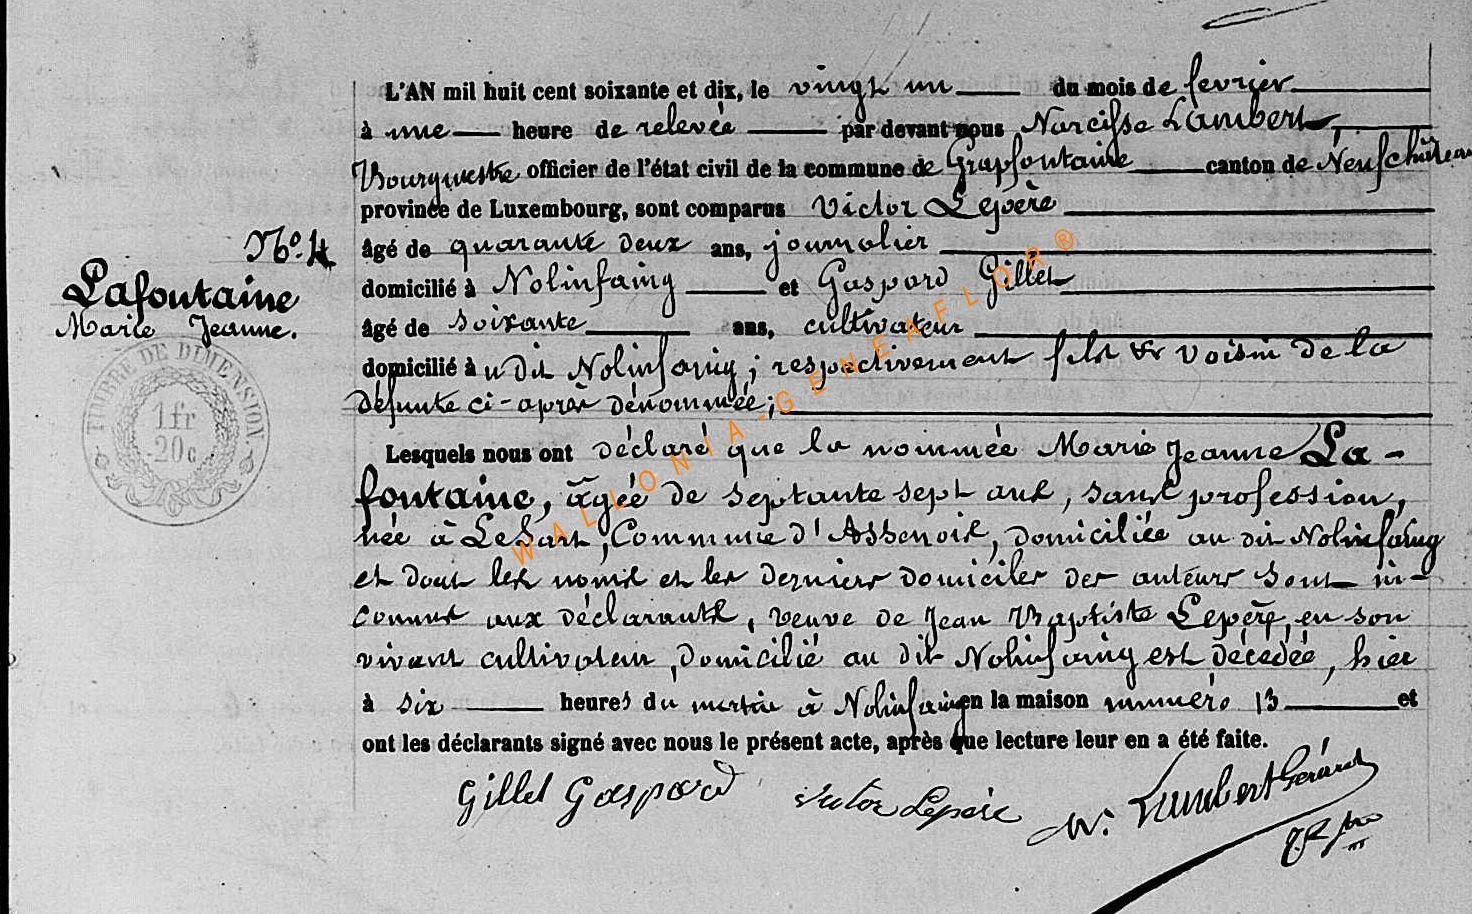 L'AN mil huit cent soixante et dix, le vingt un du mois de fevrier
à une heure de relevée par devant nous Narcisse Lambert,
Bourgmestre officier de l'état civil de la commune de Grapfontaine canton de Neufchâteau
province de Luxembourg, sont comparus Victor Lepère
âgé de quarante deux ans, journalier
domicilié à Nolinfaing et Gaspard Gillet
âgé de soixante ans, cultivateur
domicilié à u dit Nolinfaing ; respectivement fils et voisin de la
défunte ci-après dénommée ;
Lesquels nous ont déclaré que la nommée Marie Jeanne La-
fontaine, âgée de septante sept ans, sans profession,
née à LeSart, Commune d'Assenois, domiciliée au dit Nolinfaing
et dont les noms et les derniers domiciles des auteurs sont in-
connus aux déclarants, veuve de Jean Baptiste Lepère, en son
vivant cultivateur, domicilié au dit Nolinfaing est décédée, hier
à six heures du matin à Nolinfaing en la maison numéro 13 et
ont les déclarants signé avec nous le présent acte, après que lecture leur en a été faite.
Gillet Gaspard Victor Lepère N. Lambert Gérard
N°. 4
Lafontaine
Marie Jeanne.
TIMBRE DE DIMENSION
1 fr
20c
WALLONIA-GENEAFLOR®